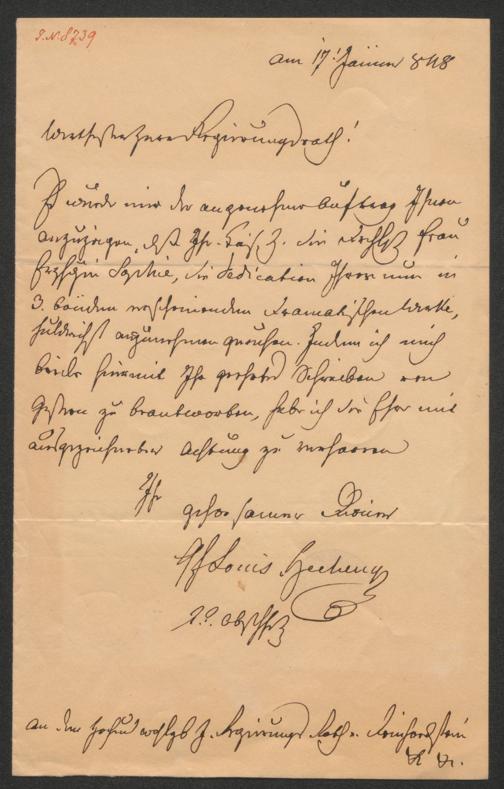 I.N. 8739
am 17. Jänner 848
Verehrtester Herr Regierungsrath!
Es wurde mir der angenehme Auftrag Ihnen
anzuzeigen, daß Ihr. Kais. H. die Frau
Erzhgin Sophie, die Dedication Ihrer nun in
3. bänden erscheinenden Dramatischen Werke,
huldreichst anzunehmen geruhen. Indem ich mich
beeile hiermit Ihr geehrtes Schreiben von
Gestern zu beantworten, habe ich die Ehre mit
ausgezeichneter Achtung zu verharren
Ihr
gehorsamer Diener
Louis
an den H. Regierungs Rath v. Deinhardstein